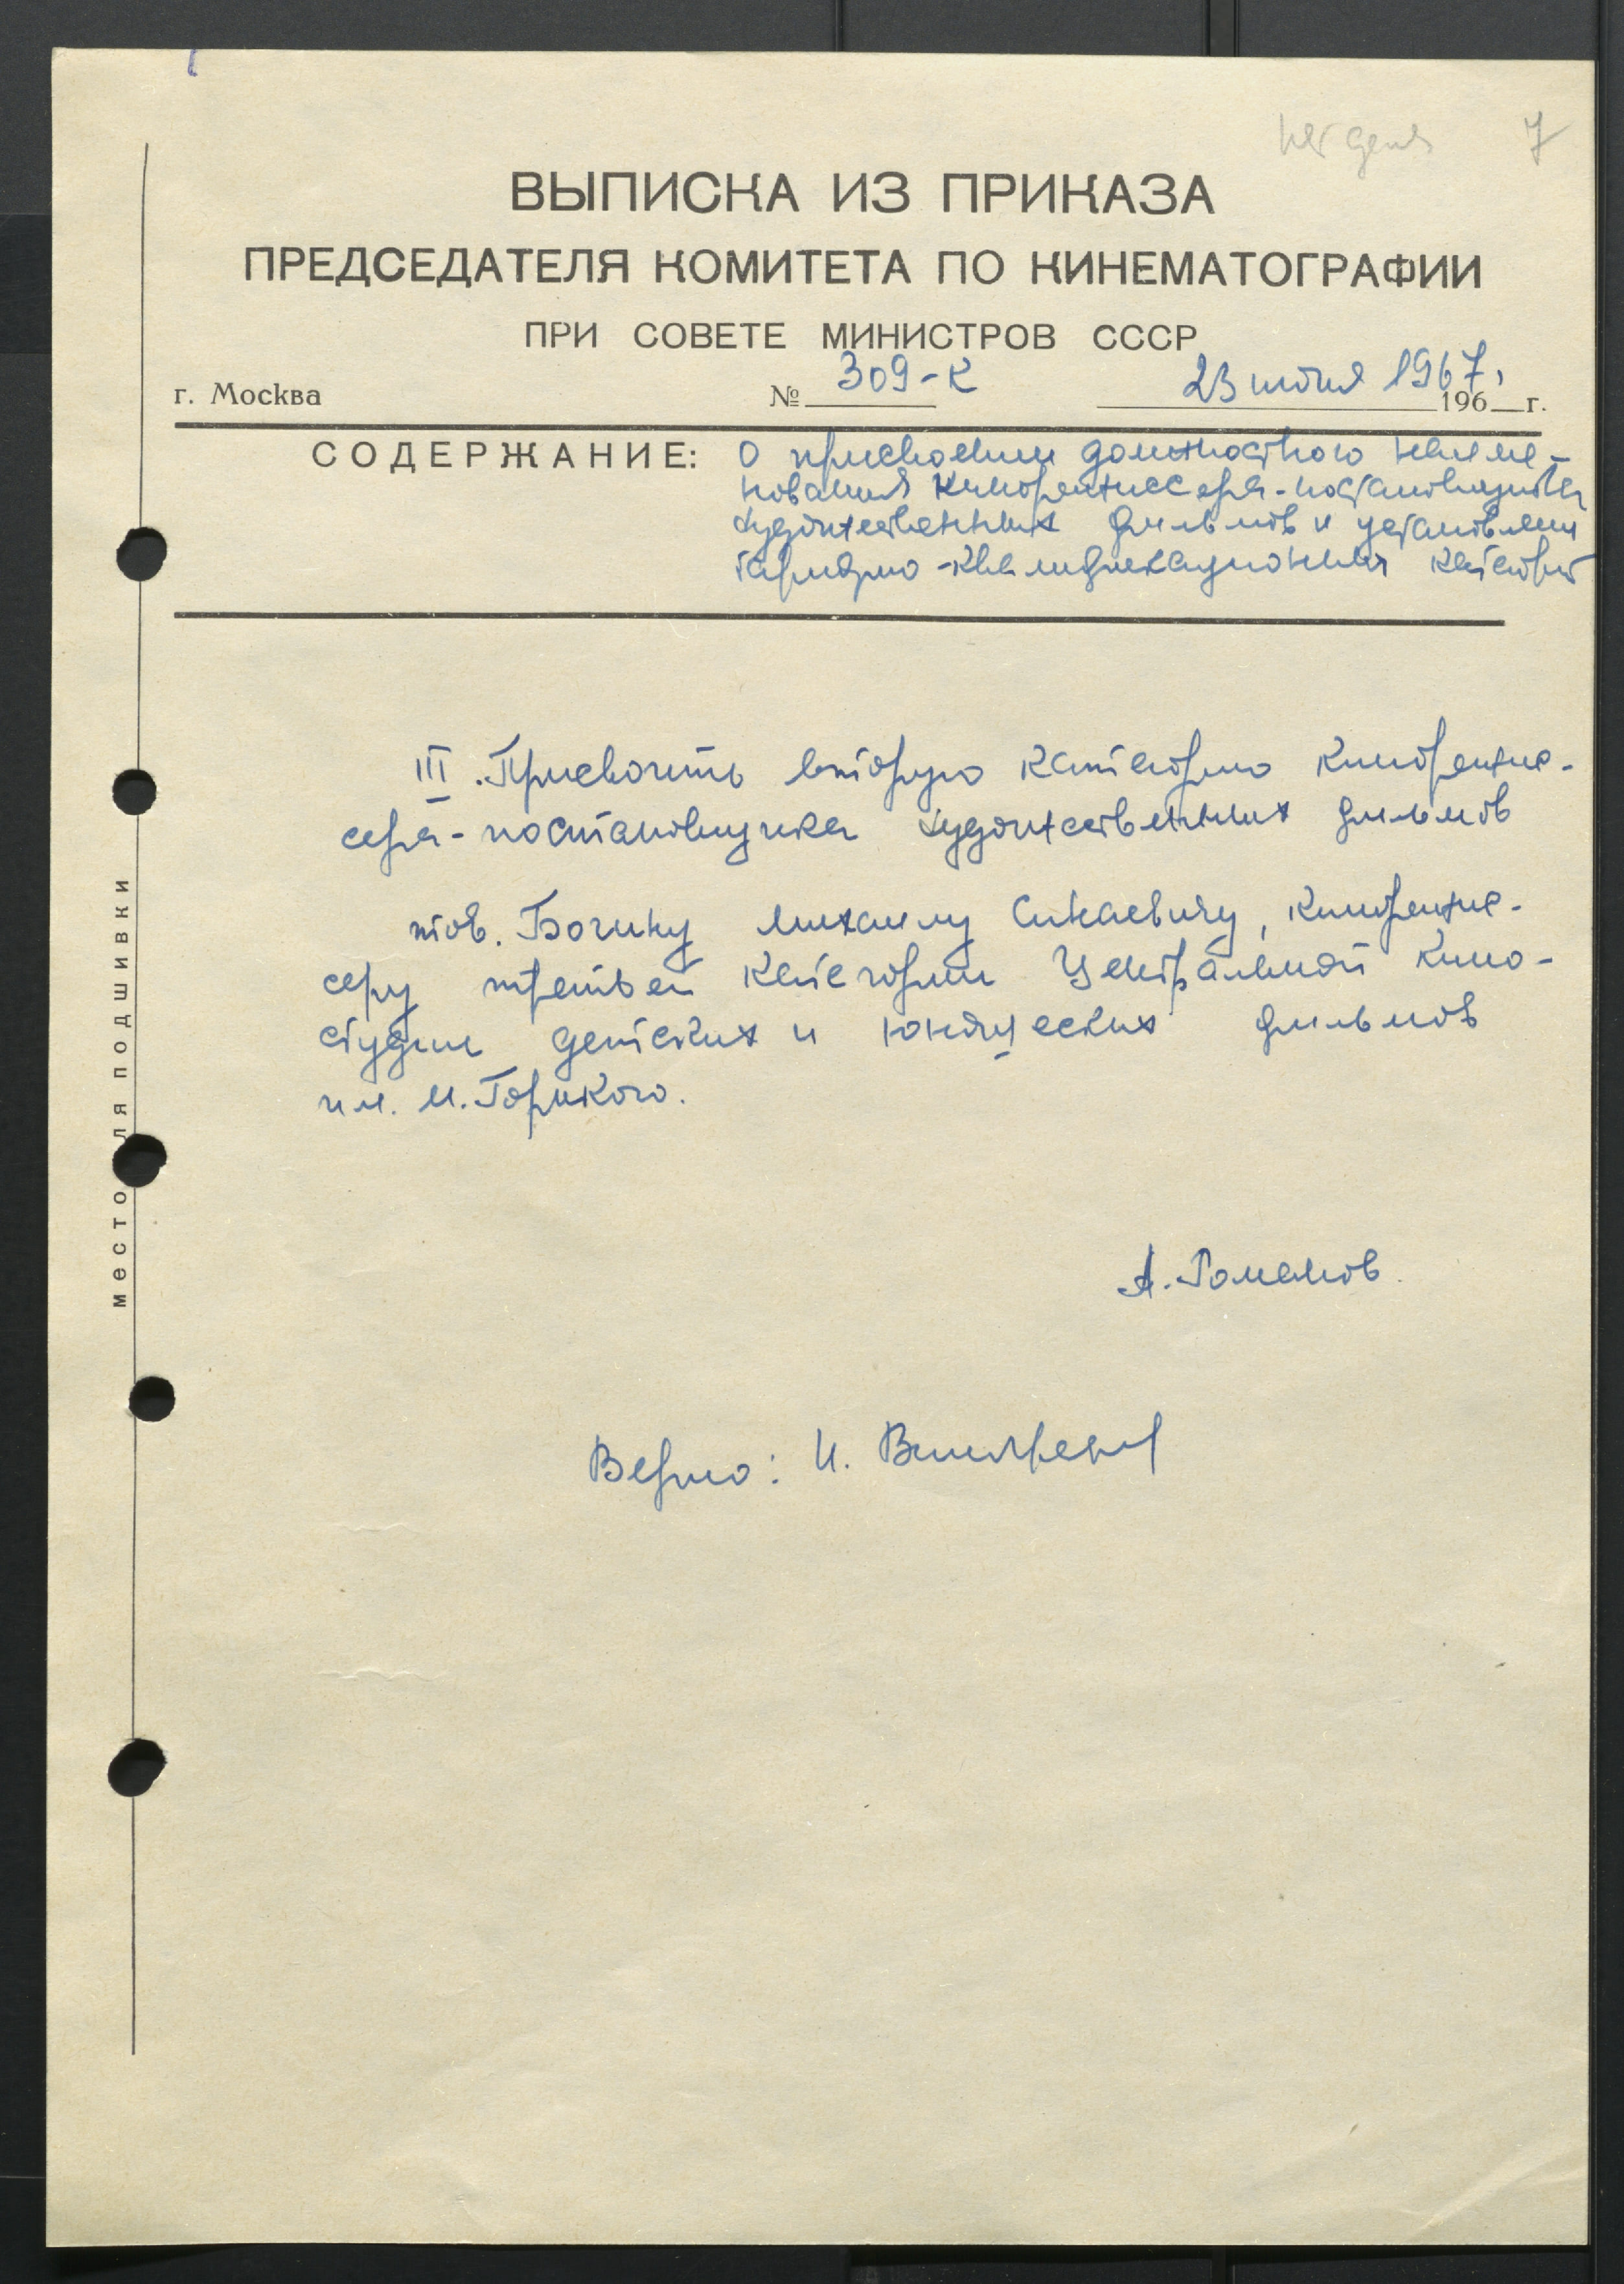 7
ВЫПИСКА ИЗ ПРИКАЗА
ПРЕДСЕДАТЕЛЯ КОМИТЕТА ПО КИНЕМАТОГРАФИИ
ПРИ СОВЕТЕ МИНИСТРОВ СССР
г. Москва № 309-к 23 июня 1967, 196 г.
СОДЕРЖАНИЕ: О присвоении должностного наиме-
нования кинорежиссера-постановщика
художественных фильмов и установлении
тарифно-квалификационных категорий
III. Присвоить вторую категорию кинорежис-
сера-постановщика художественных фильмов
тов. Богину Михаилу Синаевичу, кинорежис-
серу третьей категории Центральной кино-
студии детских и юношеских фильмов
им. М. Горького.
А. Романов.
Верно: И.
место для подшивки